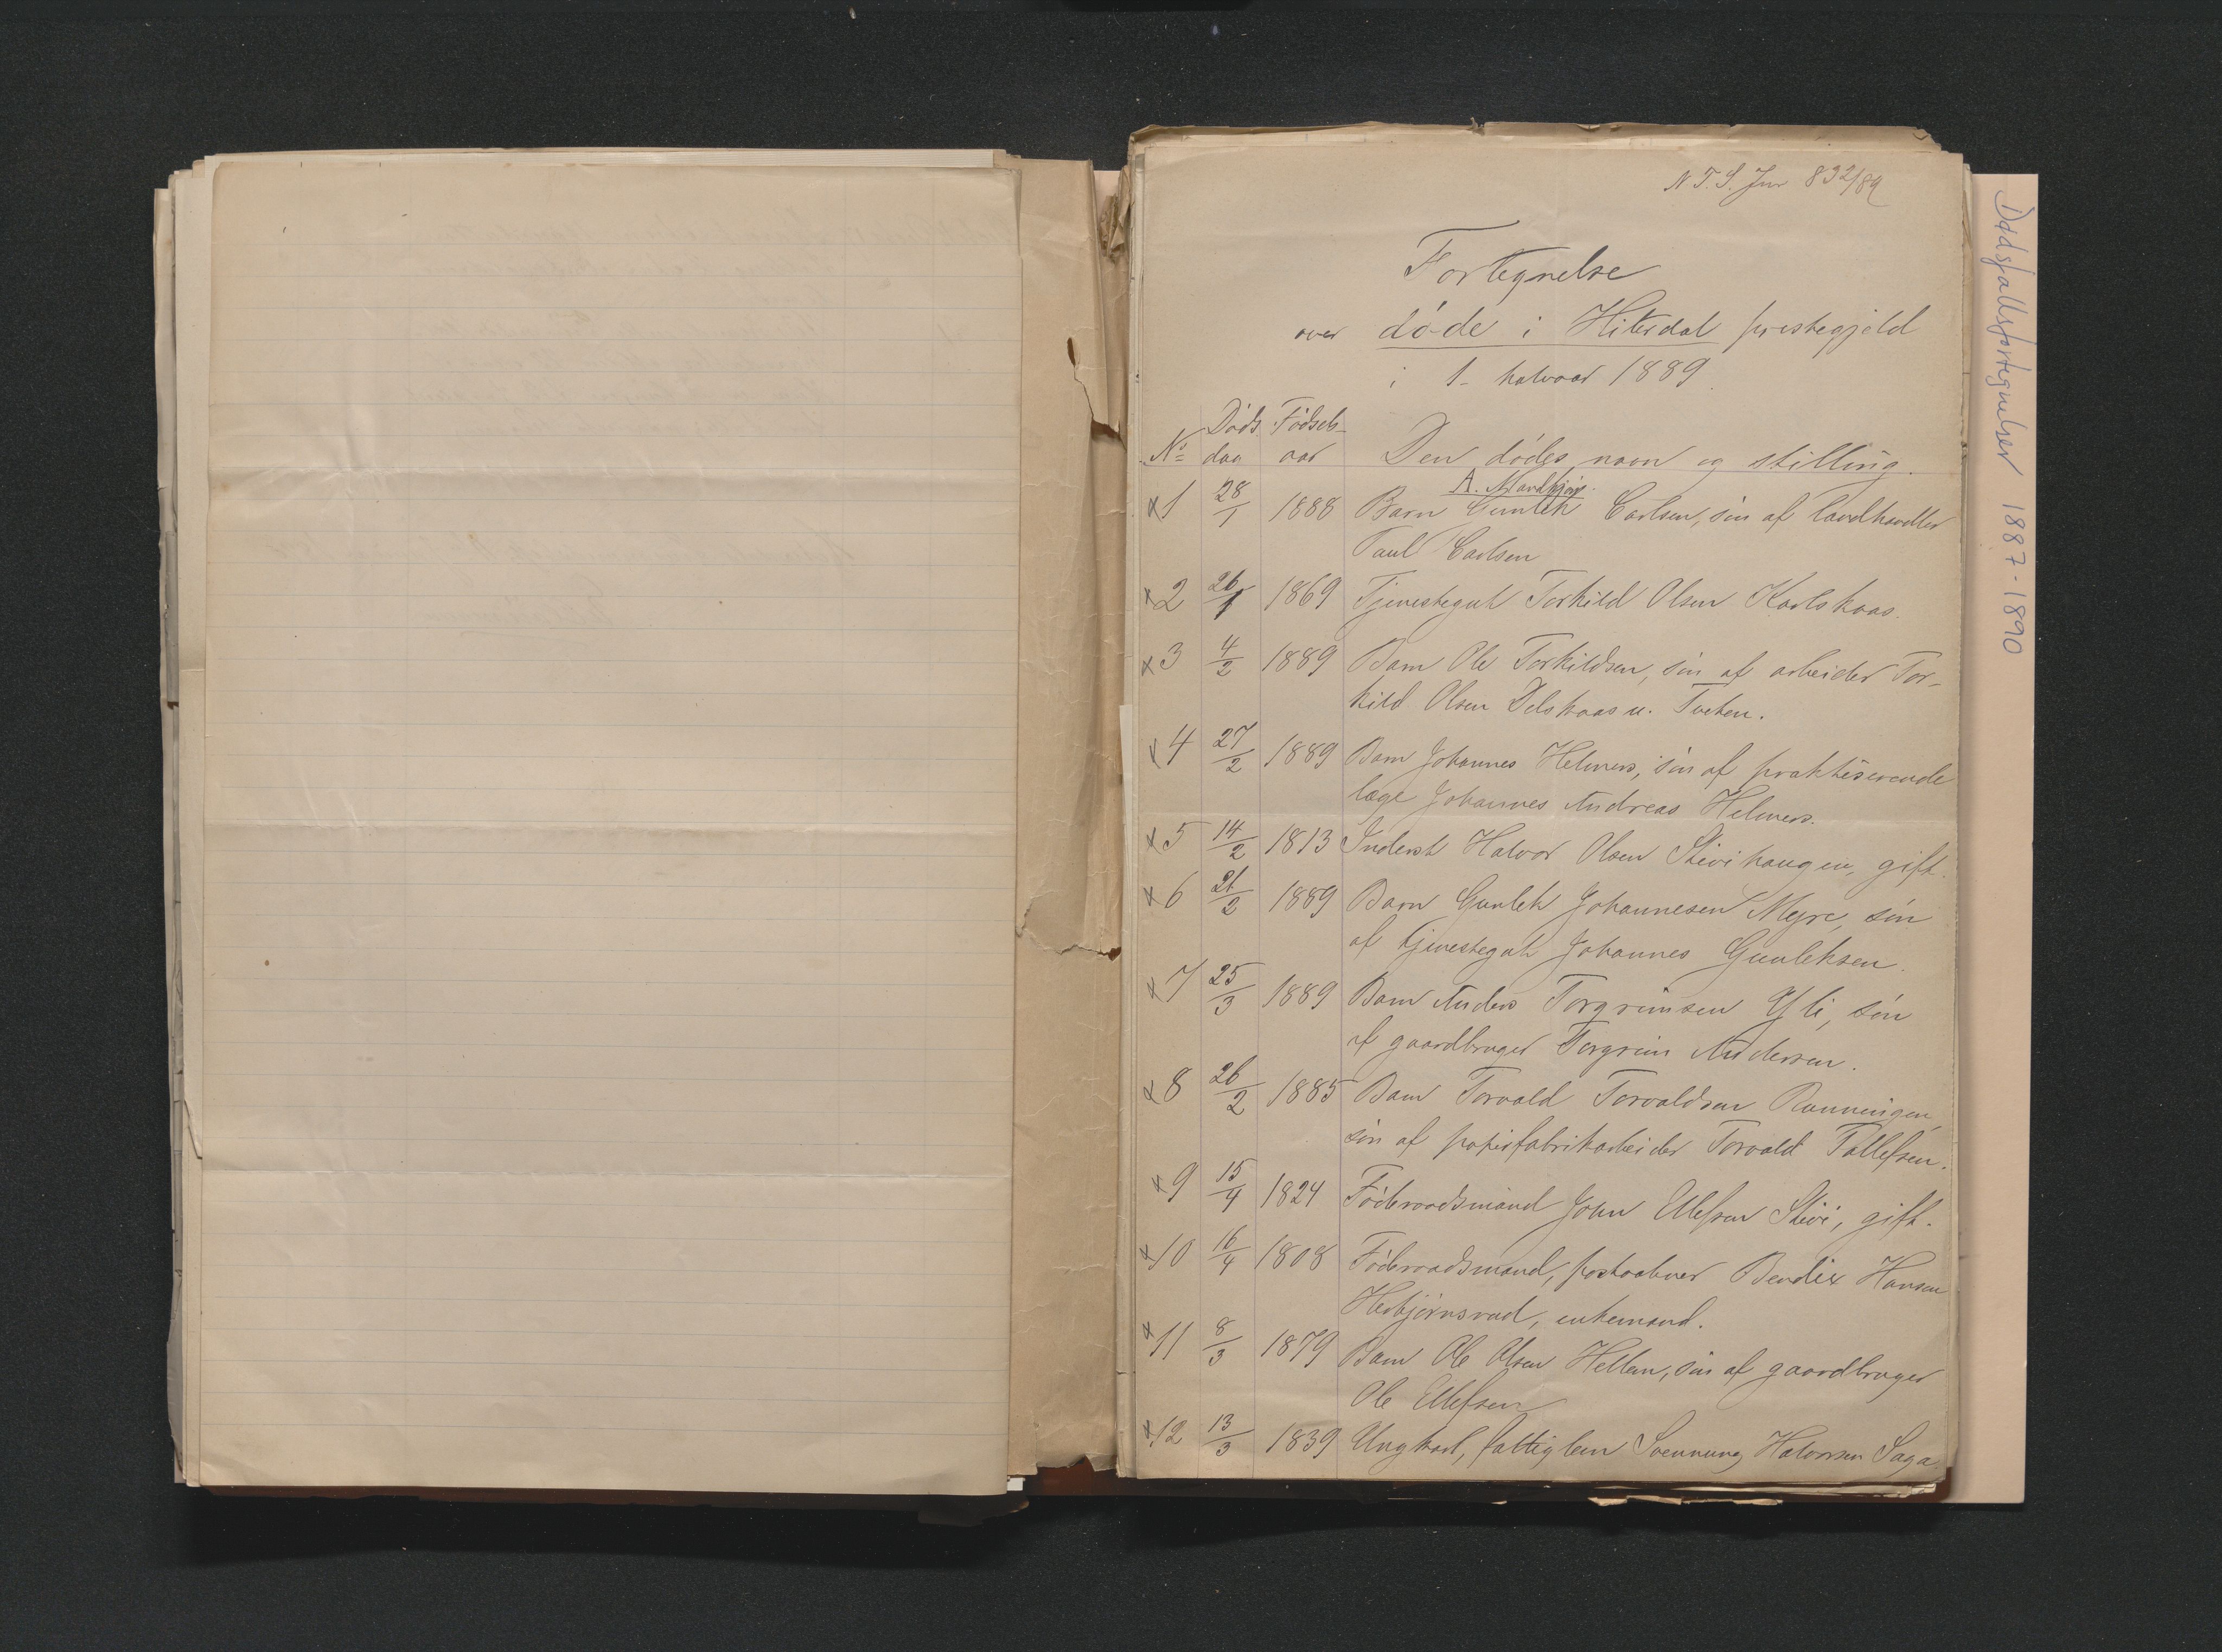 N T. S. Jur 832/89
Fortegnelse
over døde i Hiterdal prestegjeld
i 1. halvaar 1889.
Døds Fødsels-
No dag aar Den dødes navn og stilling.
A. Mandkjøn.
x1 28/1 1888 Barn Gunlek Carlsen, søn af landhandler
Paul Carlsen
x2 26/1 1869 Tjenestegut Torkild Olsen Kaslskaas.
x3 4/2 1889 Barn Ole Torkildsen, søn af arbeider Tor-
kild Olsen Delskaas u. Tveten.
x4 27/2 1889 Barn Johannes Helmers, søn af praktiserende
læge Johannes Andreas Helmers.
x5 14/2 1813 Inderst Halvor Olsen Skivihaugen, gift.
x6 21/2 1889 Barn Gunlek Johannesen Myre, søn
af tjenestegut Johannes Gunleksen.
x7 25/3 1889 Barn Anders Torgrimsen Yli, søn
af gaardbruger Torgrim Andersen.
x8 26/2 1885 Barn Torvald Torvaldsen Rønningen,
søn af papirfabrikarbeider Torvald Tallefsen.
x9 15/4 1824 Føderaadsmand John Ellefsen Skivi, gift.
x10 16/4 1808 Føderaadsmand, postaabner Bendix Hansen
Hesbjørnsrud, enkemand.
x11 8/3 1879 Barn Ole Olsen Hellem, søn af gaardbruger
Ole Ellefsen
x12 13/3 1839 Ungkarl, fattiglem Svennung Halvorsen Saga
Dødsfallsfortegnelser 1887-1890